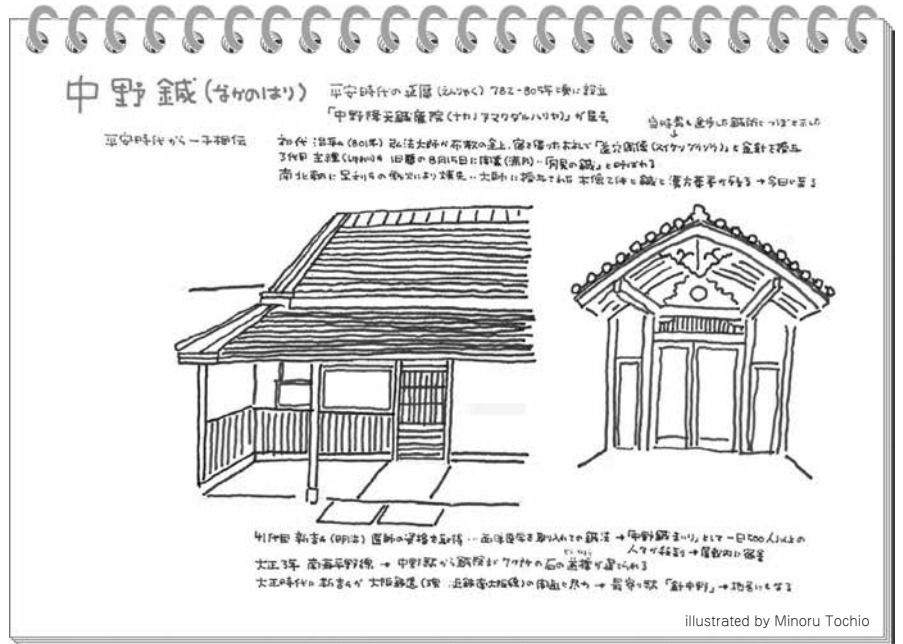 中野鍼(なかのはり)
平安時代の延暦(えんりゃく) 782-805年頃に設立
「中野降天鍼療院(ナカノアマクダルハリヤ)」が屋号
当時最も進歩した鍼術につぼを示した
平安時代から一子相伝
初代 (801年) 弘法大師が布教の途上、宿を借りたお礼で「 」と金針を授与
3代目 旧暦の8月15日に開業(満月)‥「月見の鍼」と呼ばれる
南北朝に足利らの戦火により焼失‥大師に授与された木像2体と鍼と漢方 が残る→今日に至る
41代目 新吉が(明治)医師の資格を取得‥西洋医学を取り入れての鍼法→「中野鍼まいり」として一日500人以上の
人々が 屋敷内に宿舎
大正3年 南海平野線→中野駅から鍼院まで の石の道標が建てられる
どうひょう
大正時代に新吉が大阪鉄道(現 近鉄南大阪線)の開通に尽力→最寄り駅「針中野」→地名にもなる
illustrated by Minoru Tochio